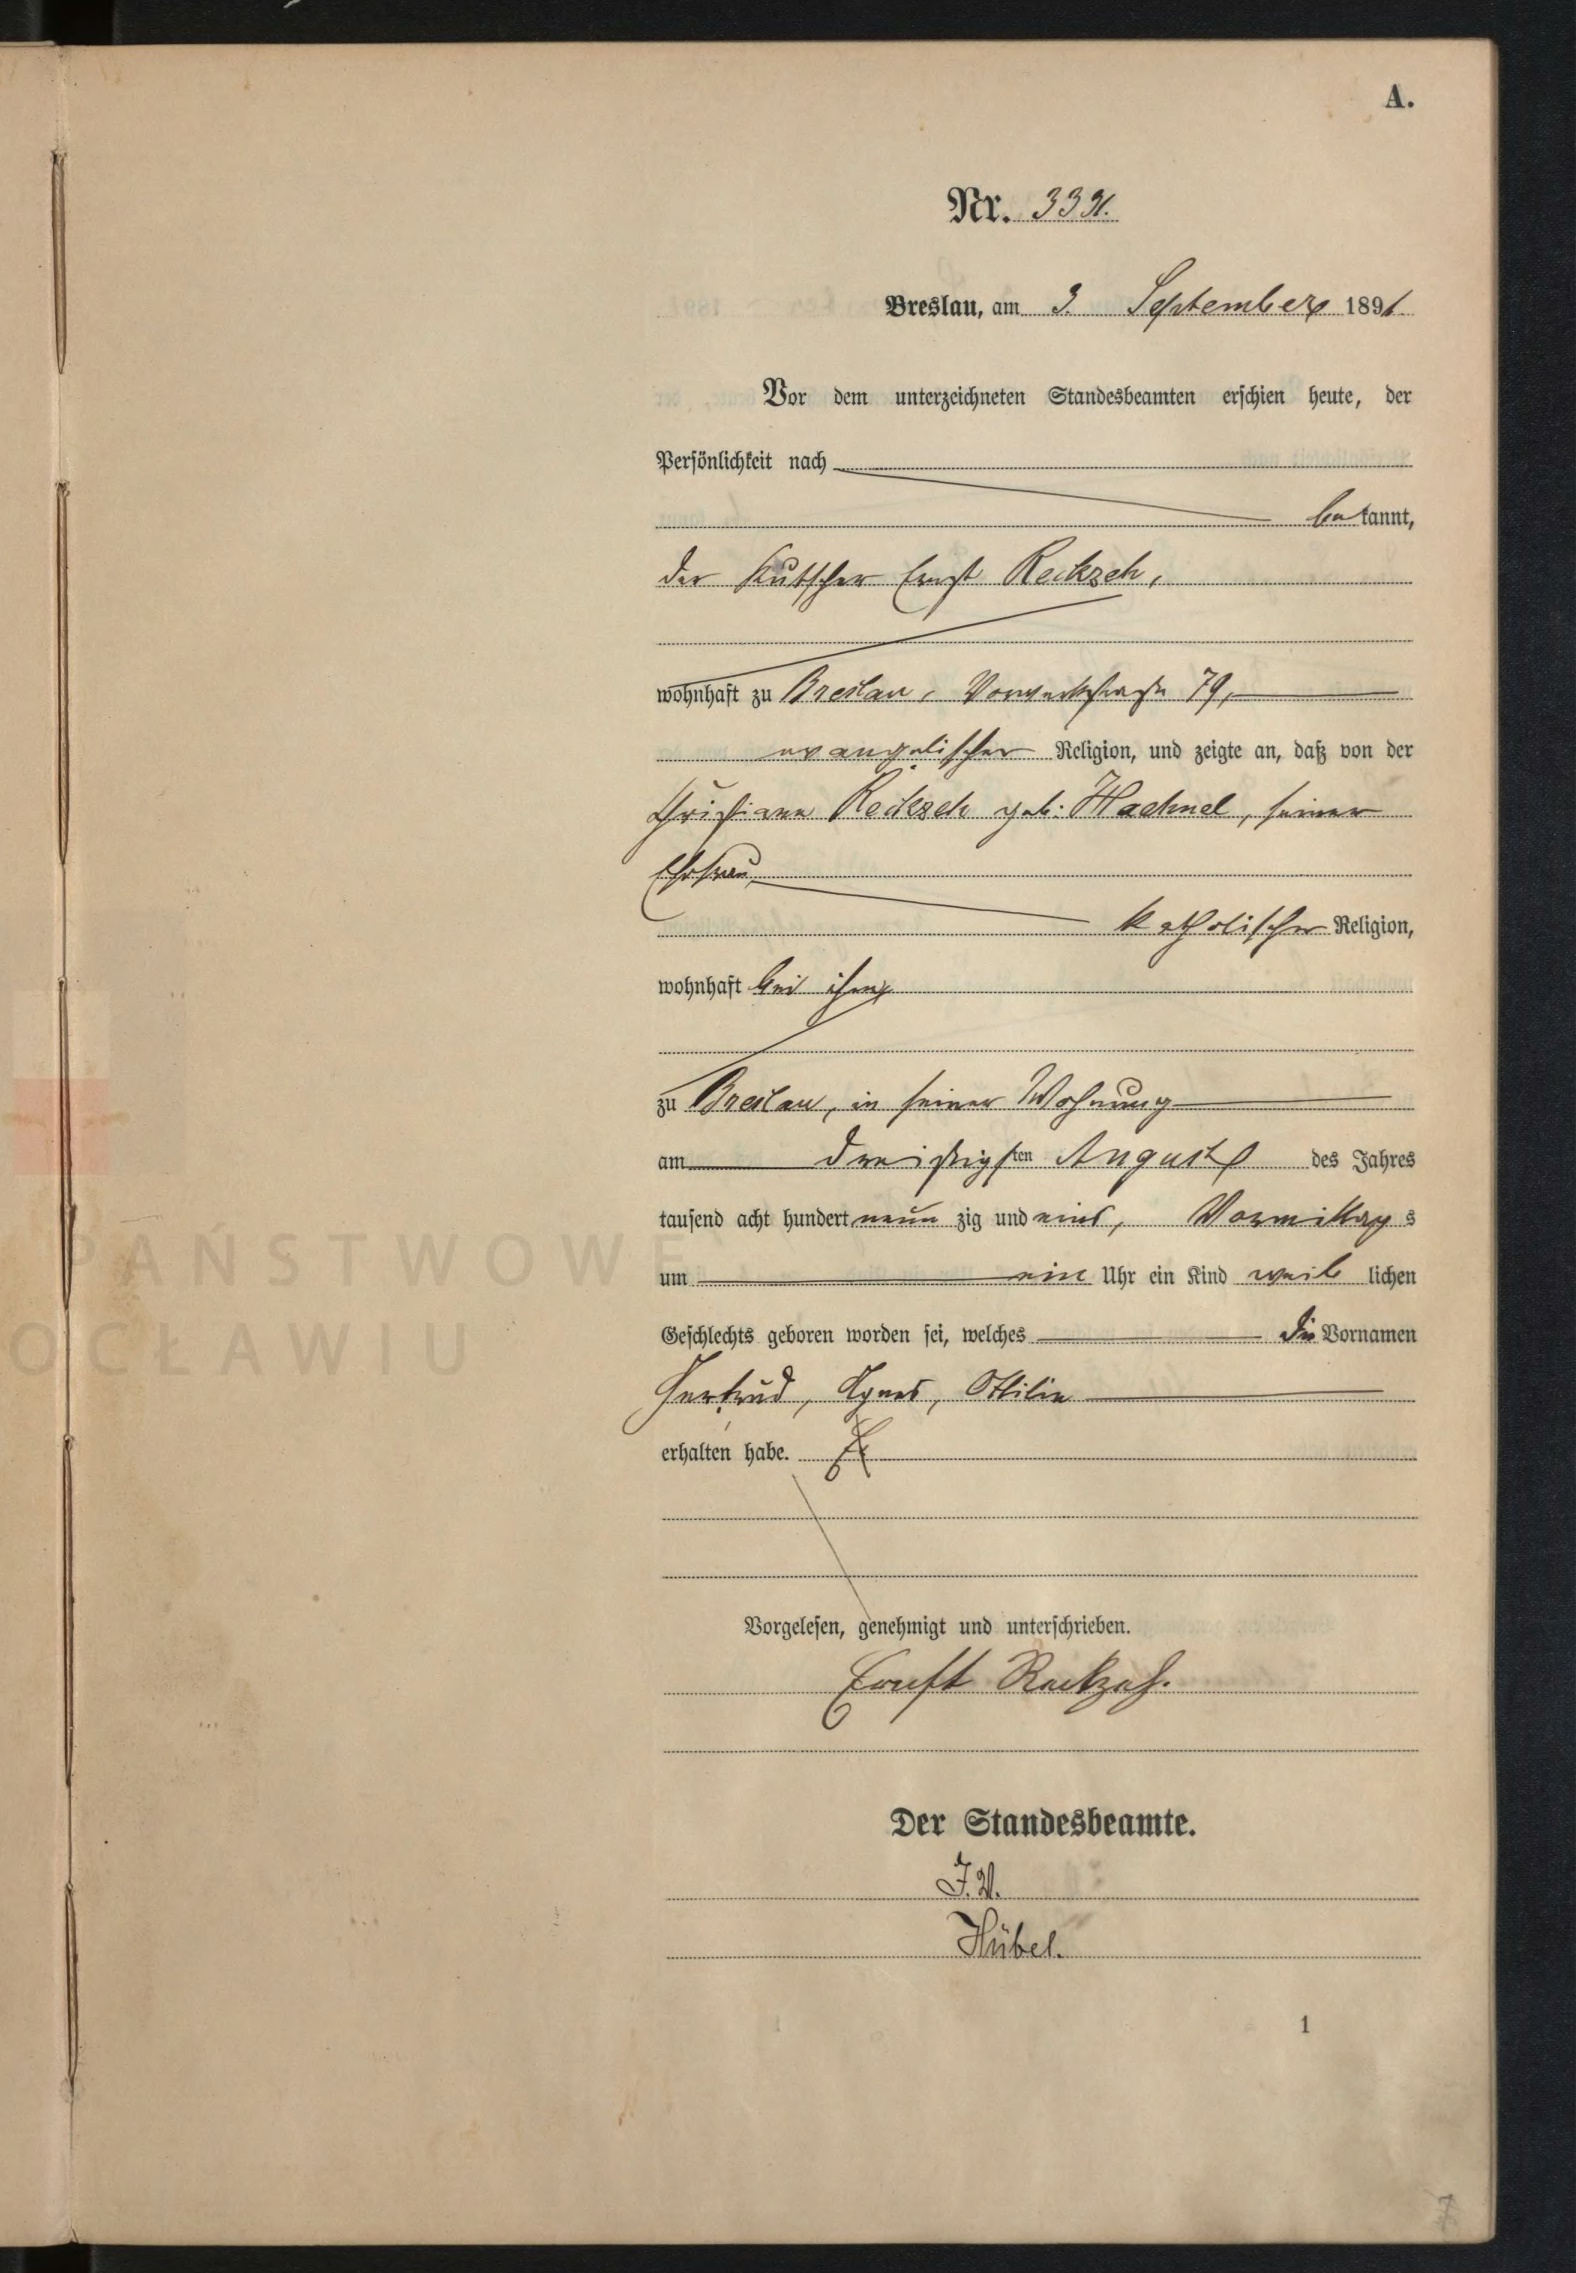 A.
Nr. 3391.
Breslau, am 3. September 1891
Vor dem unterzeichneten Standesbeamten erschien heute, der
Persönlichkeit nach
bekannt,
der Kutscher Ernst Reckzeh,
wohnhaft zu Breslau, Vorwerkstraße 79,
evangelischer Religion, und zeigte an, daß von der
Christiane Reckzeh geb. Haehnel, seiner
Ehefrau,
katholischer Religion,
wohnhaft bei ihm
zu Breslau, in seiner Wohnung
am dreißigsten August des Jahres
tausend acht hundert neun zig und eins, Vormittags
um ein Uhr ein Kind weiblichen
Geschlechts geboren worden sei, welches die Vornamen
Gertrud, Agnes, Ottilie
erhalten habe.
Vorgelesen, genehmigt und unterschrieben.
Ernst Reckzeh.
Der Standesbeamte.
J.V.
Hübel.
1
PAŃSTWOWE
OCŁAWIU